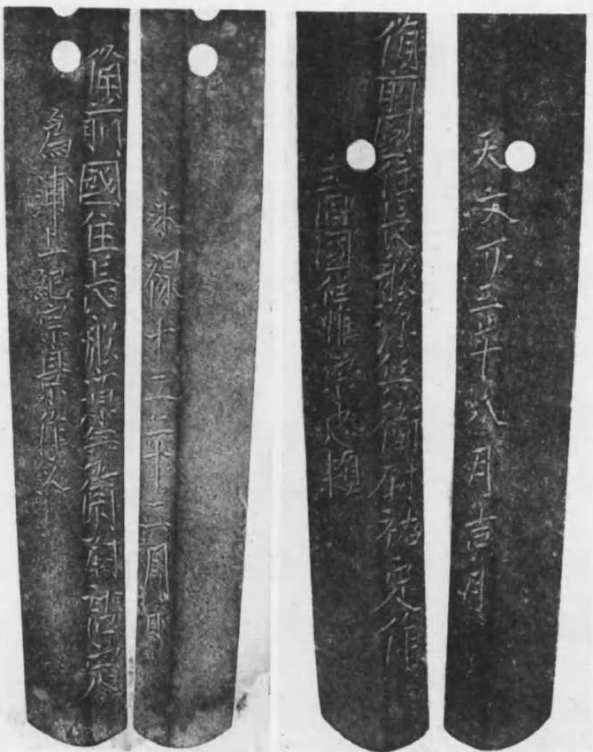 備前國住長舩源兵衛尉祐定
為浦上紀宗景作之
永禄十二年十二月日
備前國住長舩弥兵衛尉祐定作
国住惟宗忠頼
天文廿三年八月吉日